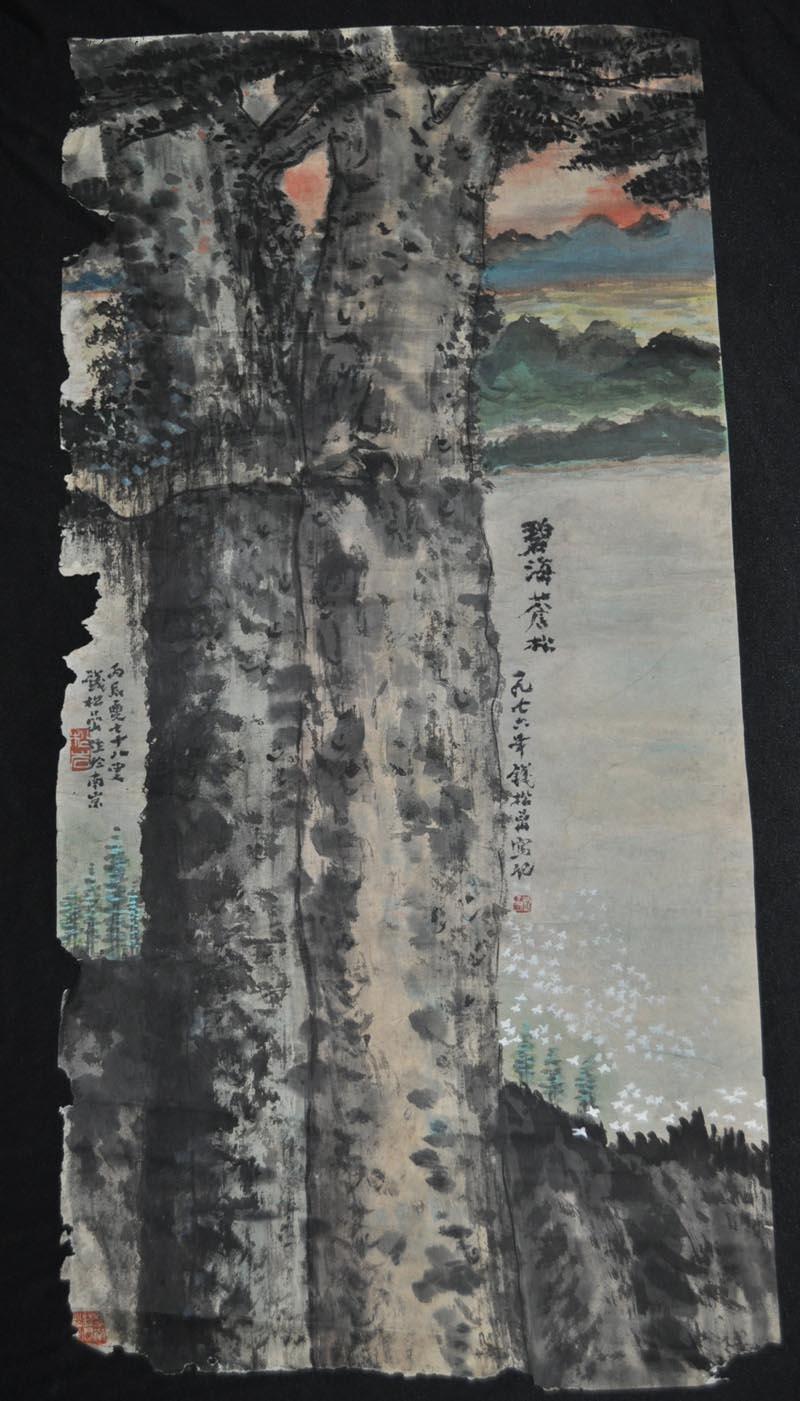 碧海蒼松
一九七六年錢松嵒寫記
丙辰夏七十八叟
錢松嵒注於南京